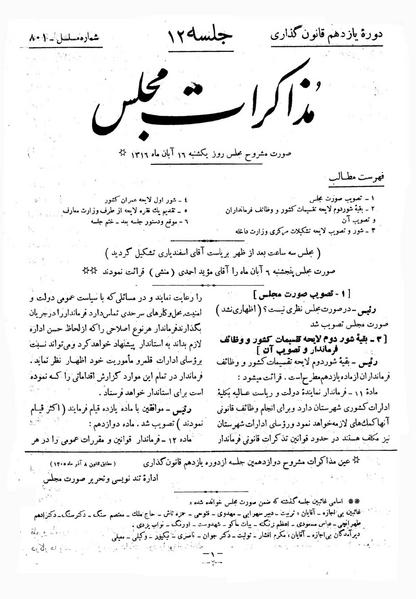 دورهٔ یازدهم قانون گذاری
جلسه ۱۲
شماره مسلسل - ۸۰۱
مذاکرات مجلس
صورت مشروح مجلس روز یکشنبه ۱۶ آبان ماه ۱۳۱۶ ☆
فهرست مطالب
۱ - تصویب صورت مجلس
۲ - بقیهٔ شور دوم لایحه تقسیمات کشور و وظائف فرمانداران
و تصویب آن
۳ - شور و تصویب لایحه تشکیلات مرکزی وزارت داخله
۴ - شور اول لایحه عمران کشور
۵ - تقدیم یك فقره لایحه از طرف وزارت معارف
۶ - موقع و دستور جلسه بعد - ختم جلسه
( مجلس سه ساعت بعد از ظهر بریاست آقای اسفندیاری تشکیل گردید )
صورت مجلس پنجشنبه ۶ آبان ماه را آقای مؤید احمدی ( منشی ) قرائت نمودند ☆☆
[ ۱ - تصویب صورت مجلس ]
رئیس - در صورت مجلس نظری نیست؟ (اظهاری نشد)
صورت مجلس تصویب شد
[ ۲ - بقیهٔ شور دوم لایحه تقسیمات کشور و وظائف
فرماندار و تصویب آن ]
رئیس - بقیهٔ شور دوم لایحه تقسیمات کشور و وظائف
فرمانداران از ماده یازدهم مطرح است. قرائت میشود:
مادهٔ ۱۱ - فرماندار نمایندهٔ دولت و ریاست عالیه بکلیهٔ
ادارات کشوری شهرستان دارد و برای انجام وظائف قانونی
آنها کمك‌های لازمه خواهد نمود و رؤسای ادارات شهرستان
نیز مکلف هستند در حدود قوانین تذکرات قانونی فرماندار
را رعایت نمایند و در مسائلی که با سیاست عمومی دولت و
امنیت محل و کارهای سرحدی تماس دارد فرماندار را در جریان
بگذارند فرماندار هر نوع اصلاحی را که از لحاظ حسن اداره
لازم بداند به استاندار پیشنهاد خواهد کرد و می‌تواند نسبت
برؤسای ادارات قلمرو مأموریت خود اظهار نظر نماید.
فرماندار در تمام این موارد گزارش اقداماتی را که نموده
است برای استاندار خواهد فرستاد.
رئیس - موافقین با ماده یازده قیام فرمایند ( اکثر قیام
نمودند ) تصویب شد. ماده دوازدهم:
ماده ۱۲ - فرماندار قوانین و مقررات عمومی را در هر
☆ عین مذاکرات مشروح دوازدهمین جلسه از دوره یازدهم قانون گذاری
اداره تند نویسی و تحریر صورت مجلس
☆☆ اسامی غائبین جلسه گذشته که ضمن صورت مجلس خوانده شده:
۱